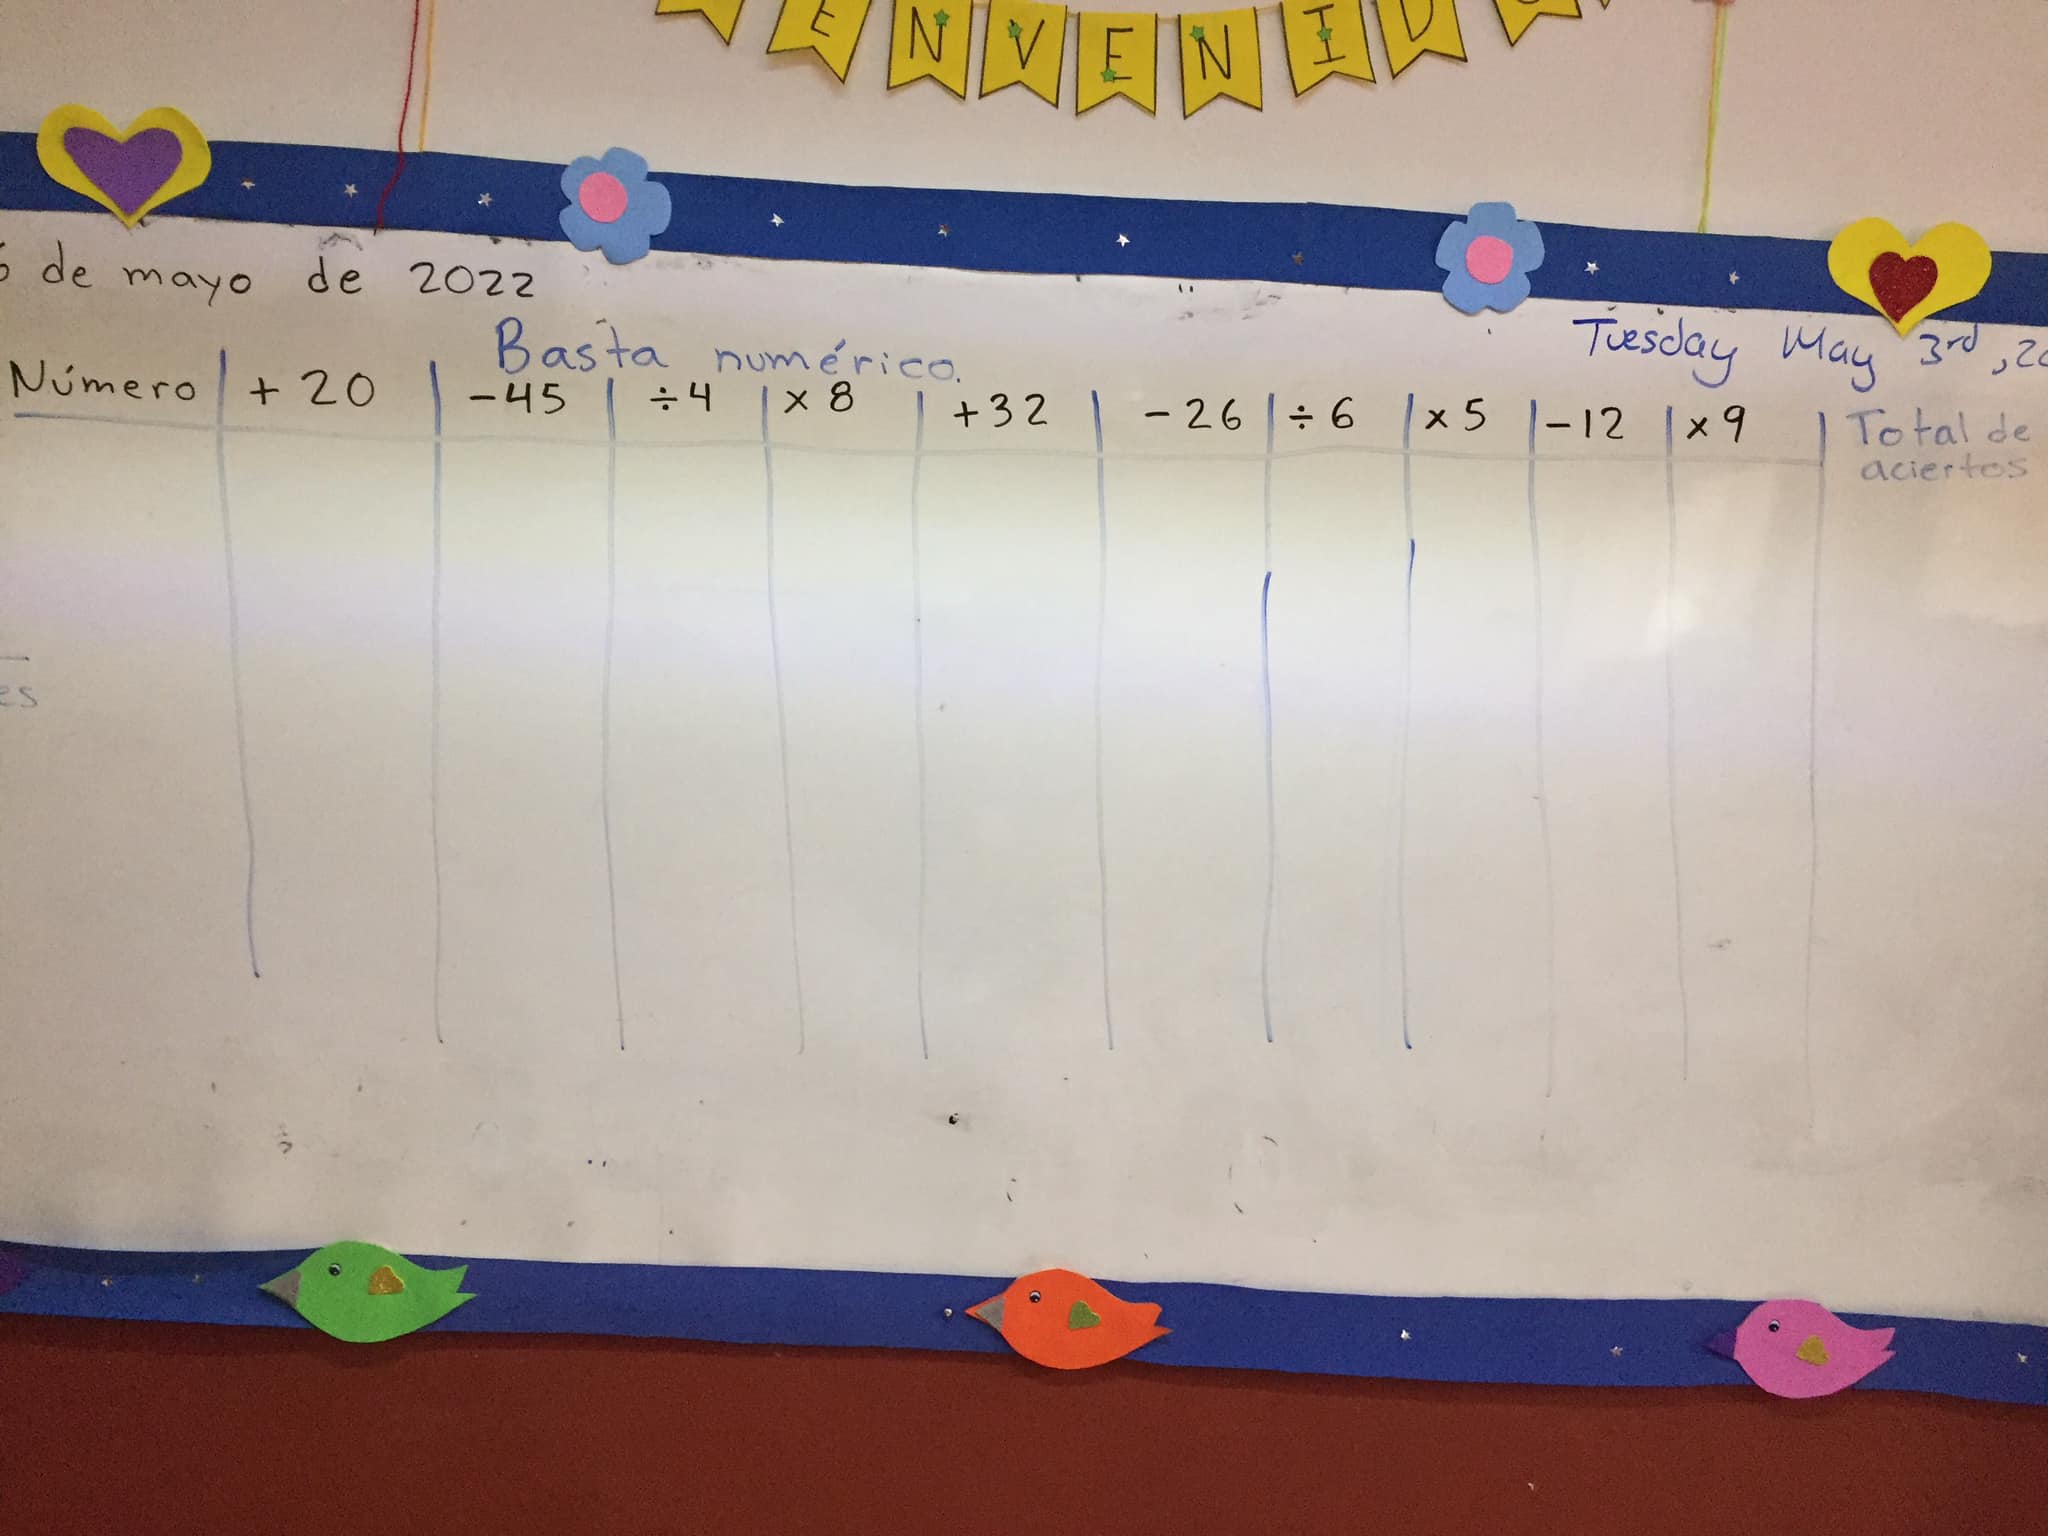 ENVENID
de mayo de 2022
Basta numérico.
Tuesday May 3rd, 20
Número + 20 -45 ÷4 x 8 +32 -26 ÷6 x5 -12 x9 Total de
aciertos
es